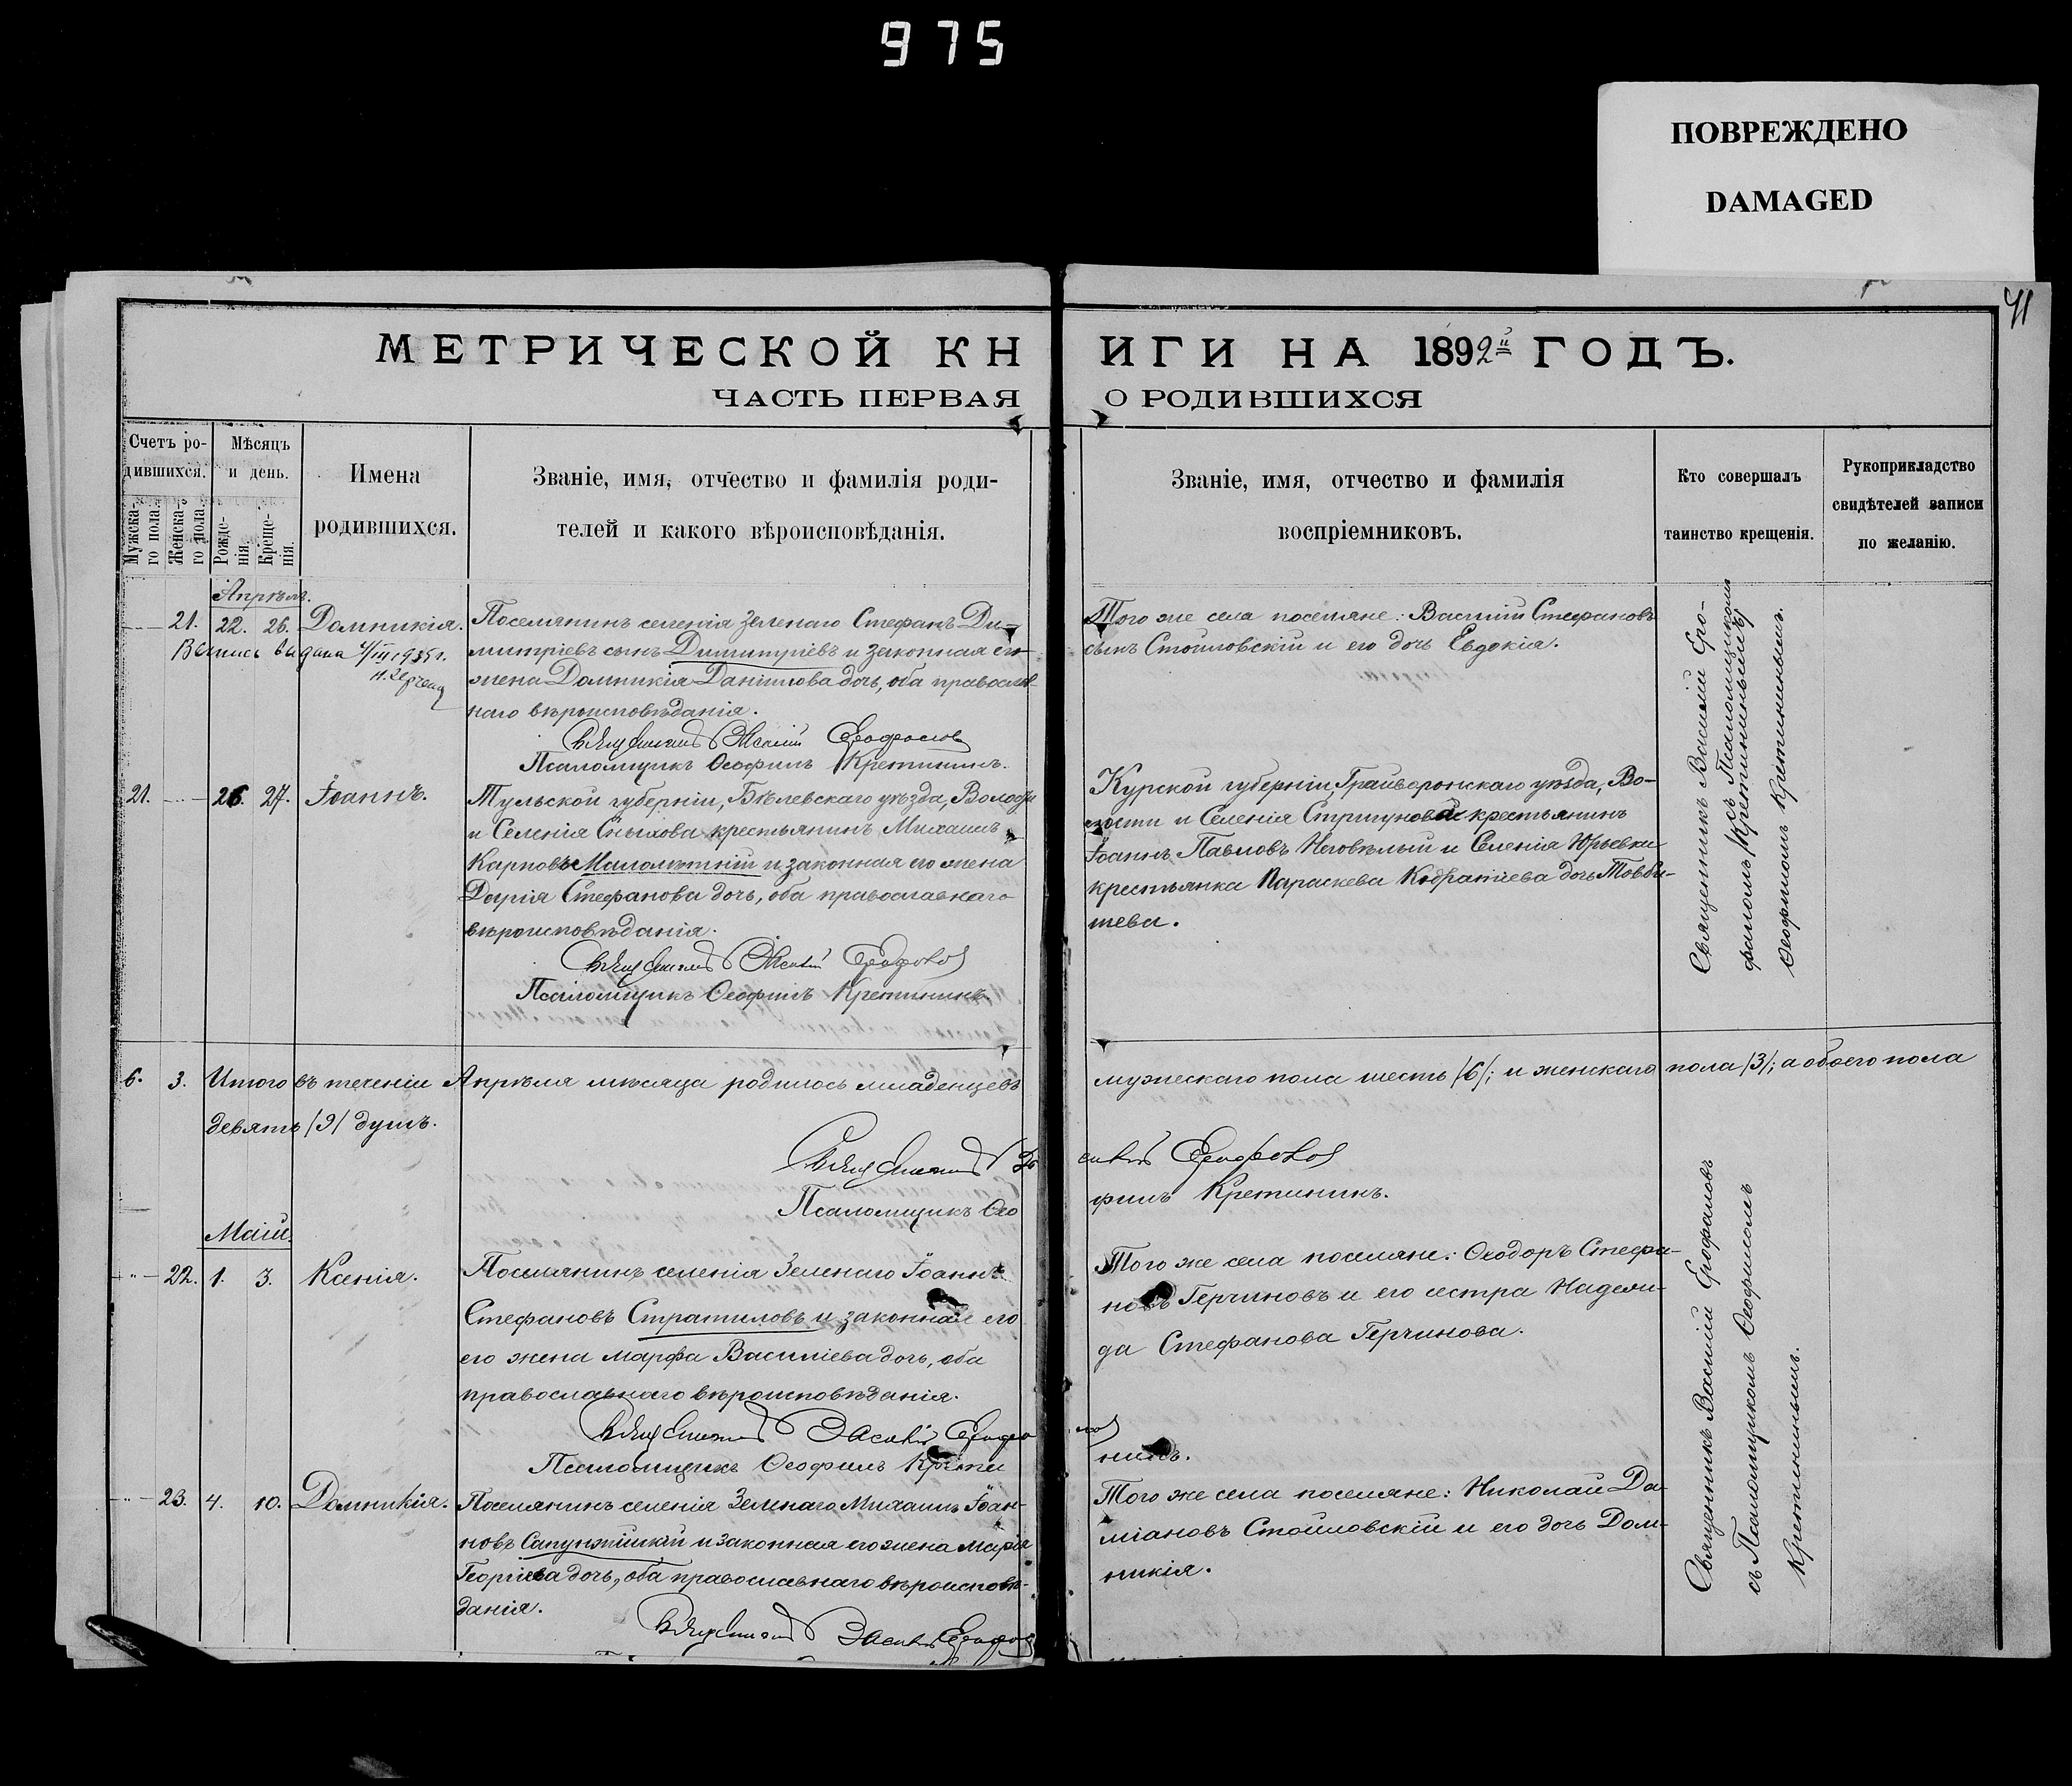 975
ПОВРЕЖДЕНО
DAMAGED
41
МЕТРИЧЕСКОЙ КНИГИ НА 1892й ГОДЪ.
ЧАСТЬ ПЕРВАЯ О РОДИВШИХСЯ
Счетъ ро-
дившихся.
Мужска-
го пола.
Женска-
го пола.
Мѣсяцъ
и день.
Рожде-
нія.
Креще-
нія.
Имена
родившихся.
Званіе, имя, отчество и фамилія роди-
телей и какого вѣроисповѣданія.
Званіе, имя, отчество и фамилія
воспріемниковъ.
Кто совершалъ
таинство крещенія.
Рукоприкладство
свидѣтелей записи
по желанію.
Апрѣль.
21. 22. 26. Домникія.
Выпись выдана 1935 г.
Поселянинъ селенія Зеленаго Стефанъ Ди-
митріевъ сынъ Димитріевъ и законная его
жена Домникія Даніилова дочь, оба православ-
наго вѣроисповѣданія.
Священникъ Василій Ерофаловъ
Псаломщикъ Ѳеофилъ Кретининъ.
Того же села поселяне: Василій Стефановъ
сынъ Стоиловскій и его дочь Евдокія.
Священникъ Василій Еро-
фаломъ съ Псаломщикомъ
Ѳеофиломъ Кретининымъ.
21. 26. 27. Іоаннъ.
Тульской губерніи, Бѣлевскаго уѣзда, Волости
и Селенія Сныхова крестьянинъ Михаилъ
Карповъ Малолѣтній и законная его жена
Дарія Стефанова дочь, оба православнаго
вѣроисповѣданія.
Священникъ Василій Ерофаловъ
Псаломщикъ Ѳеофилъ Кретининъ.
Курской губерніи, Грайворонскаго уѣзда, Во-
лости и Селенія Стригунова крестьянинъ
Іоаннъ Павловъ Неговѣлый и Селенія Юрьевки
крестьянка Параскева Кодратіева дочь Товби-
шева.
6. 3. Итого въ теченіи Апрѣля мѣсяца родилось младенцевъ мужескаго пола шесть /6/; и женскаго пола /3/; а обоего пола
девять /9/ душъ.
Священникъ Василій Ерофаловъ
Псаломщикъ Ѳеофилъ Кретининъ.
Маій.
22. 1. 3. Ксенія.
Поселянинъ селенія Зеленаго Іоаннъ
Стефановъ Стратиловъ и законная его
его жена Марфа Василіева дочь, оба
православнаго вѣроисповѣданія.
Священникъ Василій Ерофаловъ
Псаломщикъ Ѳеофилъ Кретининъ.
Того же села поселяне: Ѳеодоръ Стефа-
новъ Герчиновъ и его сестра Надеж-
да Стефанова Герчинова.
Священникъ Василій Ерофаловъ
съ Псаломщикомъ Ѳеофиломъ
Кретининымъ.
23. 4. 10. Домникія.
Поселянинъ селенія Зеленаго Михаилъ Іоан-
новъ Сапунжійскій и законная его жена Марія
Георгіева дочь, оба православнаго вѣроисповѣ-
данія.
Священникъ Василій Ерофаловъ
Того же села поселяне: Николай Да-
міановъ Стоиловскій и его дочь Дом-
никія.